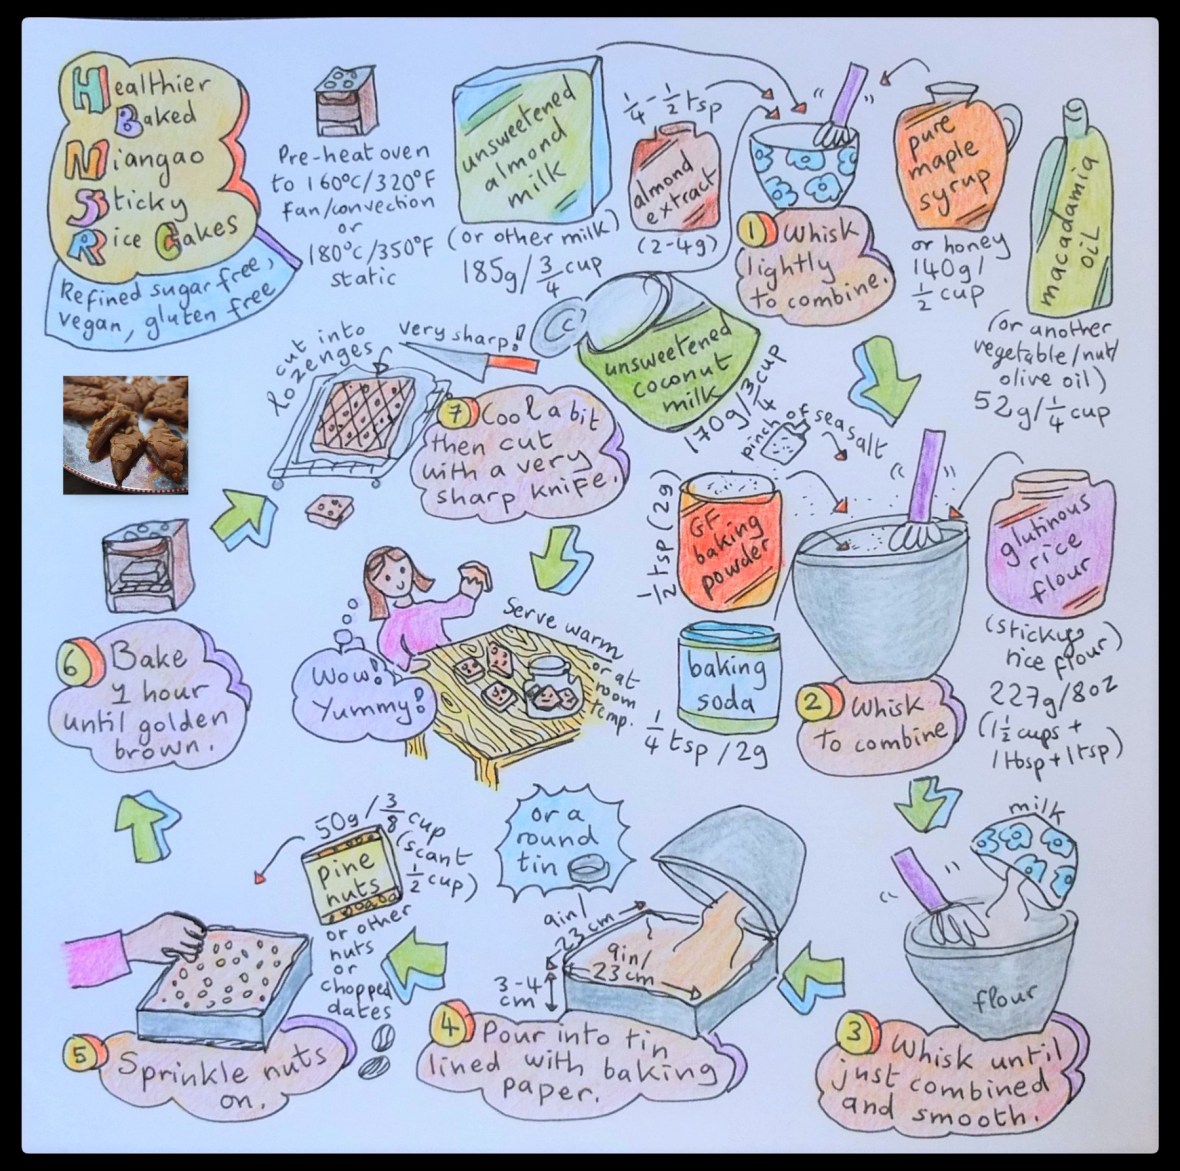 Healthier
Baked
Niangao
Sticky
Rice Cakes
Refined sugar free,
vegan, gluten free
Pre-heat oven
to 160°C/320°F
fan/convection
or
180°C/350°F
static
unsweetened
almond
milk
(or other milk)
185g/3/4 cup
1/4-1/2 tsp
almond
extract
(2-4g)
1 Whisk
lightly
to combine.
pure
maple
syrup
or honey
140g/
1/2 cup
macadamia
oil
(or another
vegetable/nut/
olive oil)
52g/1/4 cup
unsweetened
coconut
milk
170g/3/4 cup
pinch of sea salt
GF
baking
powder
1/2 tsp (2g)
baking
soda
1/4 tsp / 2g
2 Whisk
to combine
glutinous
rice
flour
(sticky
rice flour)
227g/8oz
(1 1/2 cups +
1 tbsp + 1 tsp)
milk
flour
3 Whisk until
just combined
and smooth.
or a
round
tin
9in/
23cm
9in/
23cm
3-4
cm
4 Pour into tin
lined with baking
paper.
50g/3/8 cup
(scant
1/2 cup)
pine
nuts
or other
nuts
or
chopped
dates
5 Sprinkle nuts
on.
6 Bake
1 hour
until golden
brown.
cut into
lozenges
very sharp!
7 Cool a bit
then cut
with a very
sharp knife.
Serve warm
or at
room
temp.
Wow!
Yummy!